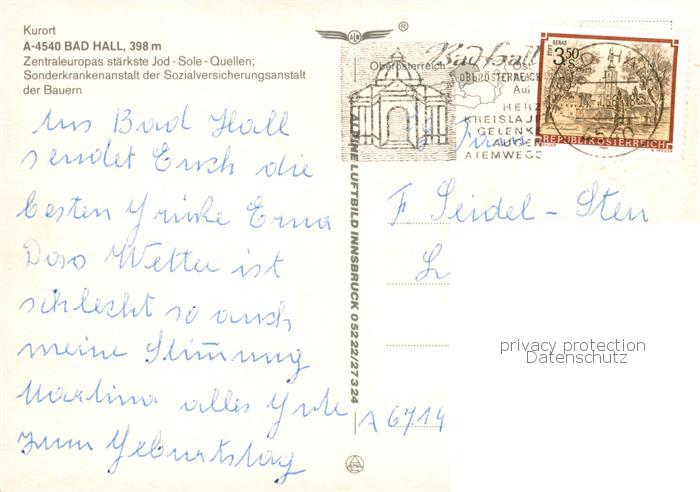 Kurort
A-4540 BAD HALL, 398 m
Zentraleuropas stärkste Jod-Sole-Quellen;
Sonderkrankenanstalt der Sozialversicherungsanstalt
der Bauern
Aus Bad Hall
sendet Euch die
besten Grüße Erna
Das Wetter ist
schlecht so auch
meine Stimmung
Martina alles Gute
zum Geburtstag
ALPINE LUFTBILD INNSBRUCK 05222/27324
®
Bad Hall
Oberösterreich
OBERÖSTERREICH
HERZ
KREISLAUF
GELENKE
AUGEN
ATEMWEGE
STIFT GERAS
3.50
S
REPUBLIK ÖSTERREICH
F. Seidel-Sten
L
A 6714
privacy protection
Datenschutz